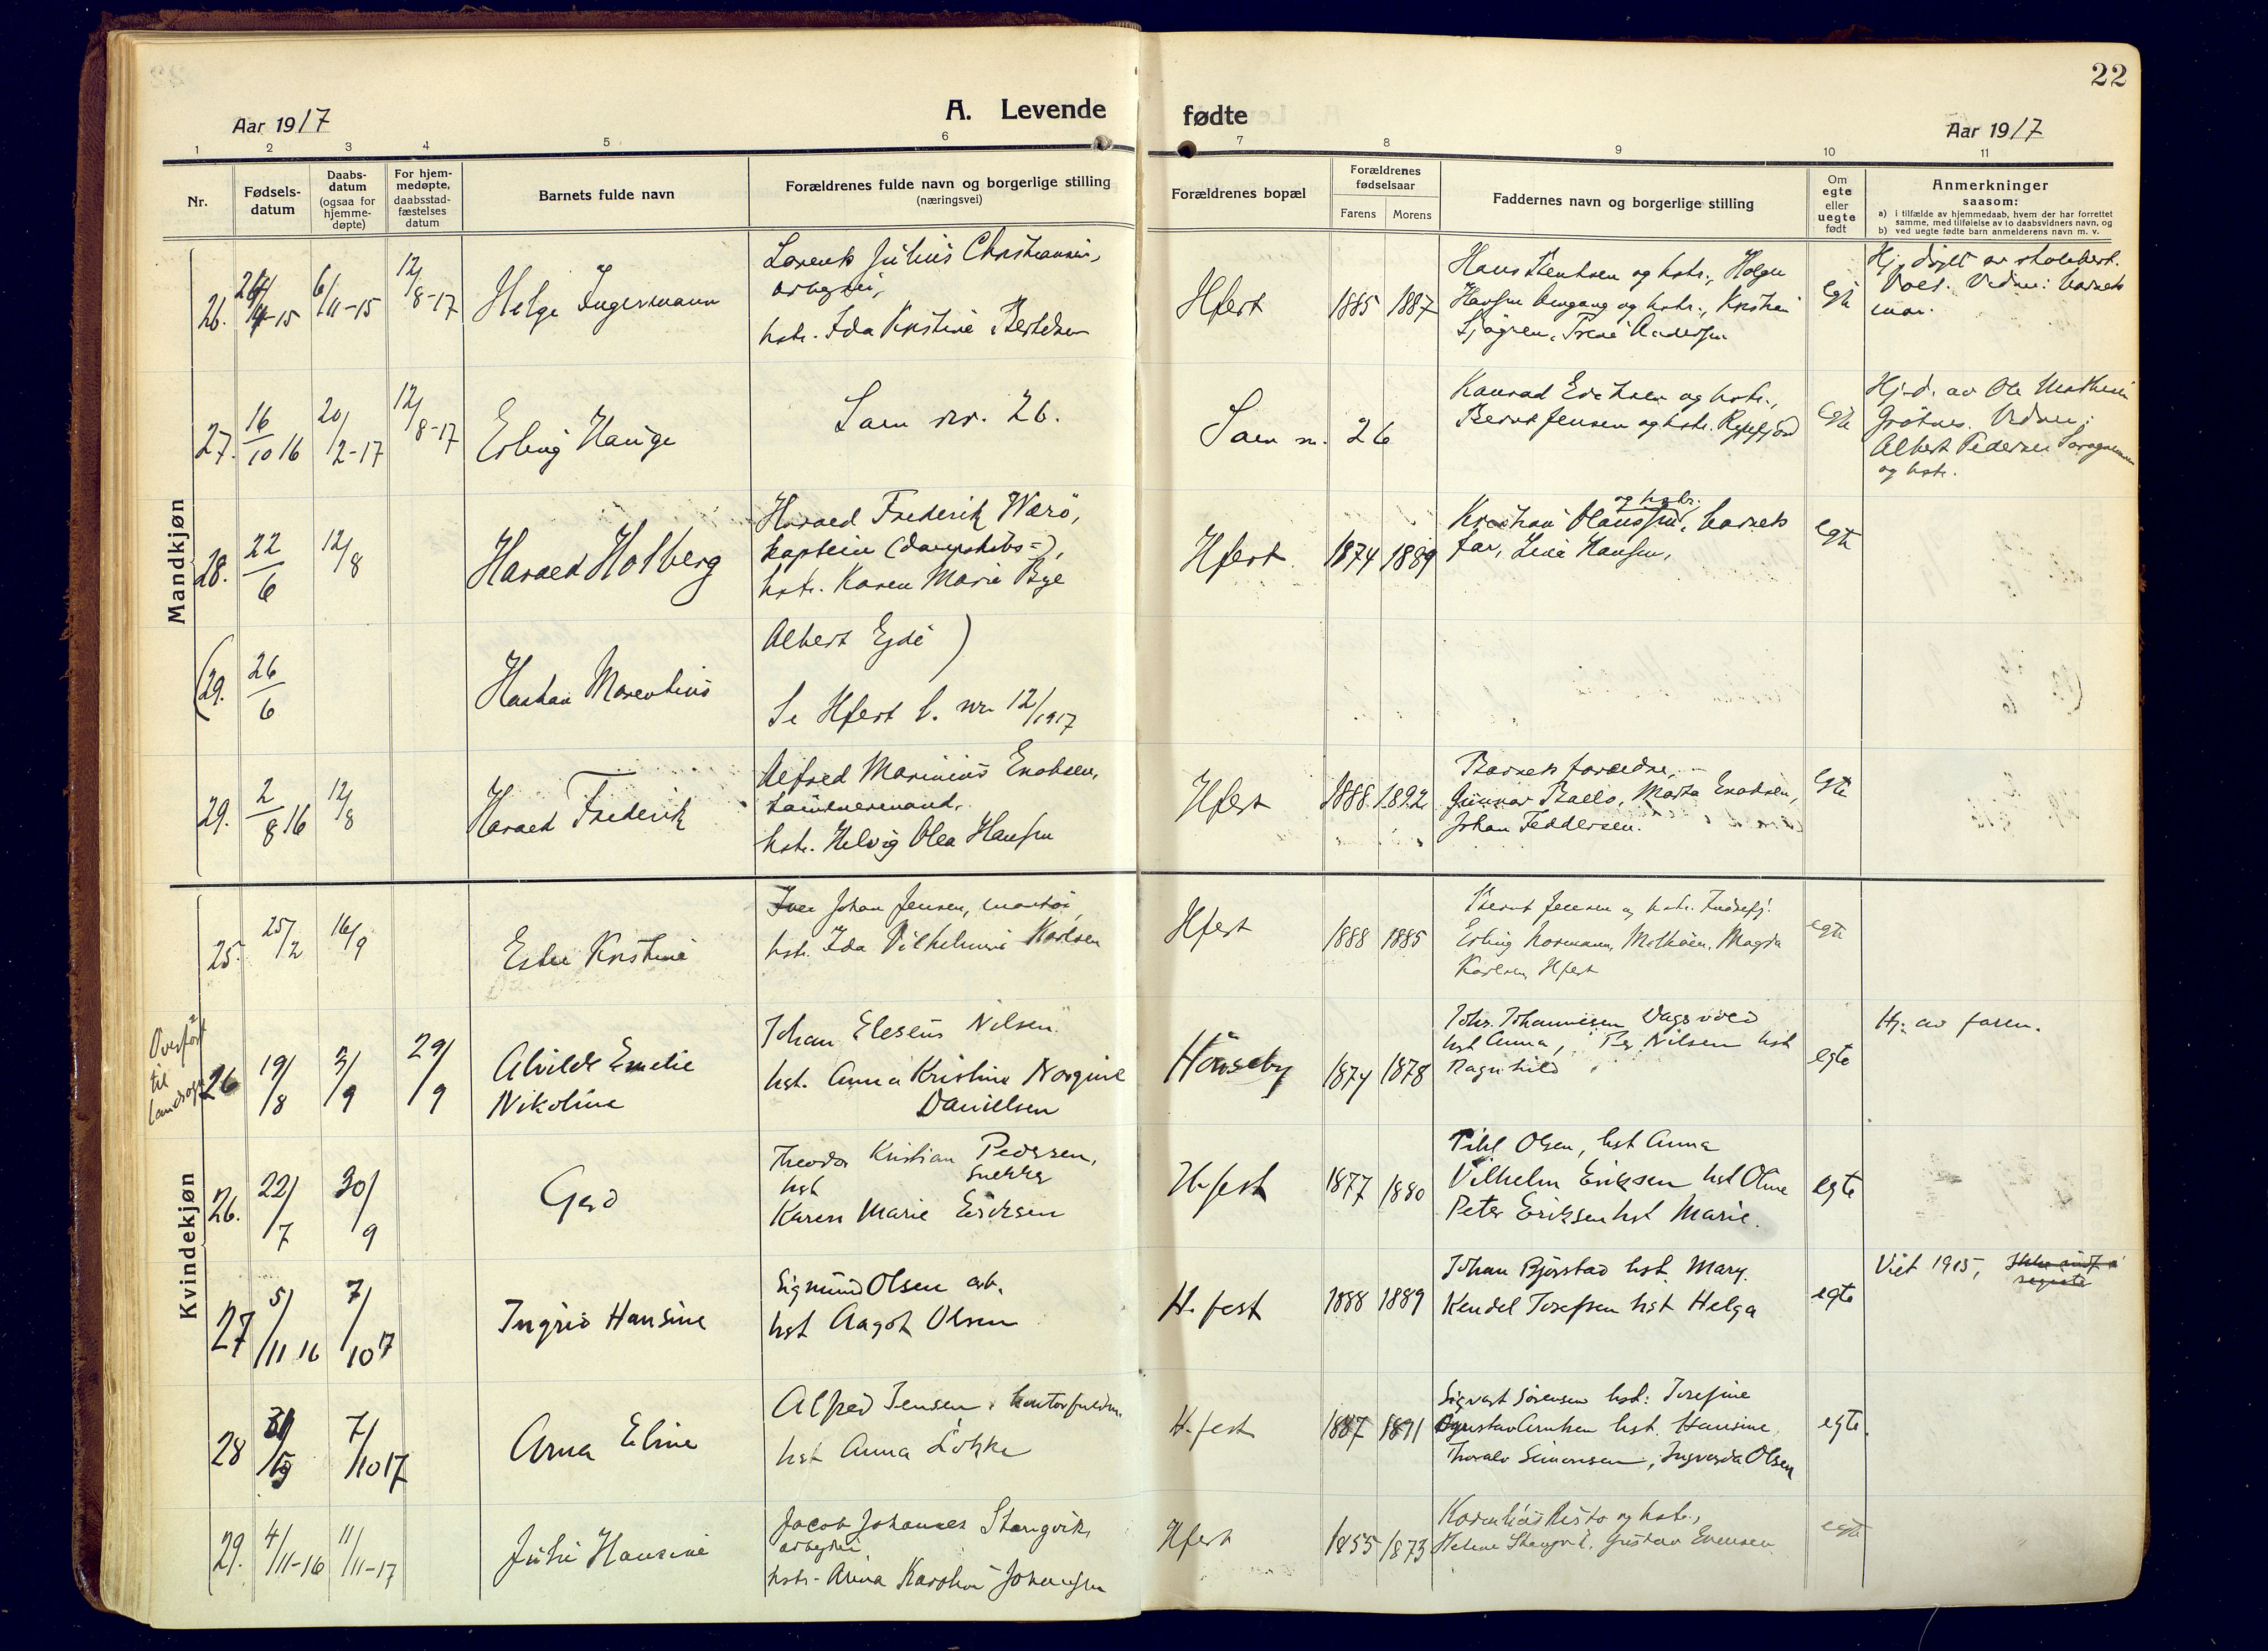 22
Aar 1917
A. Levende
fødte
Aar 1917
1 2 3 4 5 6 7 8 9 10 11
Nr.
Fødsels-
datum
Daabs-
datum
(ogsaa for
hjemme-
døpte)
For hjem-
medøpte,
daabsstad-
fæstelses
datum
Barnets fulde navn
Forældrenes fulde navn og borgerlige stilling
(næringsvei)
Forældrenes bopæl
Forældrenes
fødselsaar
Farens Morens
Faddernes navn og borgerlige stilling
Om
egte
eller
uegte
født
Anmerkninger
saasom:
a) i tilfælde av hjemmedaab, hvem der har forrettet
samme, med tilføielse av to daabsvidners navn, og
b) ved uegte fødte barn anmelderens navn m. v.
Mandkjøn
26.
6/11-15
12/8-17
Helge Ingermann
Julius Christiansen,
hstr. Ida Kristine Bertelsen
Hfest
1885 1887
Hans Bentsen og hstr., Helga
og hstr., Kristian
egte
Hj. døpt av
Vidner: barnets
mor.
27.
16/10 16
20/2-17
12/8-17
Erling Hauge
Som nr. 26.
Som nr. 26
Konrad Erichsen og hstr.,
Bernt Jensen og hstr. Rypefjord
egte
Hj.d. av Ole Mathisen
Grøtnes. Vidner:
Albert Pedersen
og hstr.
28.
22/6
12/8
Harald Holberg
Harald Frederik Wærø,
kaptein (dampskibs-),
hstr. Karen Marie Bye
Hfest
1874 1889
og hstr.
Kristian Olaussen, barnets
far, Hansen,
egte
(29.
26/6
Albert Egde )
Se Hfest l. nr 12/1917
29.
2/8 16
12/8
Harald Frederik
Alfred Marinius Enoksen,
hstr. Helvig Olea Hansen
Hfest
1888 1892
Barnets forældre,
Gunnar Ballo, Marta Enoksen,
Johan Feddersen.
egte
Kvindekjøn
25.
25/2
16/9
Ester Kristine
Iver Johan Jensen,
hstr. Ida Vilhelmine Karlsen
Hfest
1888 1885
Bernt Jensen og hstr.
Erling Normann, Magda
Karlsen, Hfest
egte
Overført
til
landsogn
26
19/8
3/9
29/9
Alvilde Emelie
Nikoline
Johan Eleseus Nilsen
hst. Anna Kristine Norgine
Danielsen
Hønseby
1874 1878
Johs. Johannesen Vagsvold
hst Anna, Per Nilsen hst
Ragnhild
egte
Hj. av faren.
26.
22/7
30/9
Gerd
Theodor Kristian Pedersen,
snekker
hst
Karen Marie Eriksen
H.fest
1877 1880
Pihl Olsen, hst Anna
Vilhelm Eriksen hst Oline
Peter Eriksen hst Marie.
egte
27
5/11 16
7/10 7
Ingrid Hansine
Sigmund Olsen arb.
hst Aagot Olsen
H. fest
1888 1889
Johan Bjørstad hst. Mary.
Kendel Josefsen hst Helga
egte
Viet 1915,
28
7/10 17
Arna Eline
Alfred Jensen, kontorfuldm.
hst Anna Løkke
H. fest
1887 1891
Sigvart Sørensen hst: Josefine
hst. Hansine,
Thoralv Simonsen, Ingvarda Olsen
egte.
29.
4/11-16
11/11-17
Julie Hansine
Jacob Johannes Stangvik,
arbeider
hstr. Anna Karoline Johansen
Hfest
1855 1873
og hstr.,
Helene Stangvik, Gustav Evensen
egte